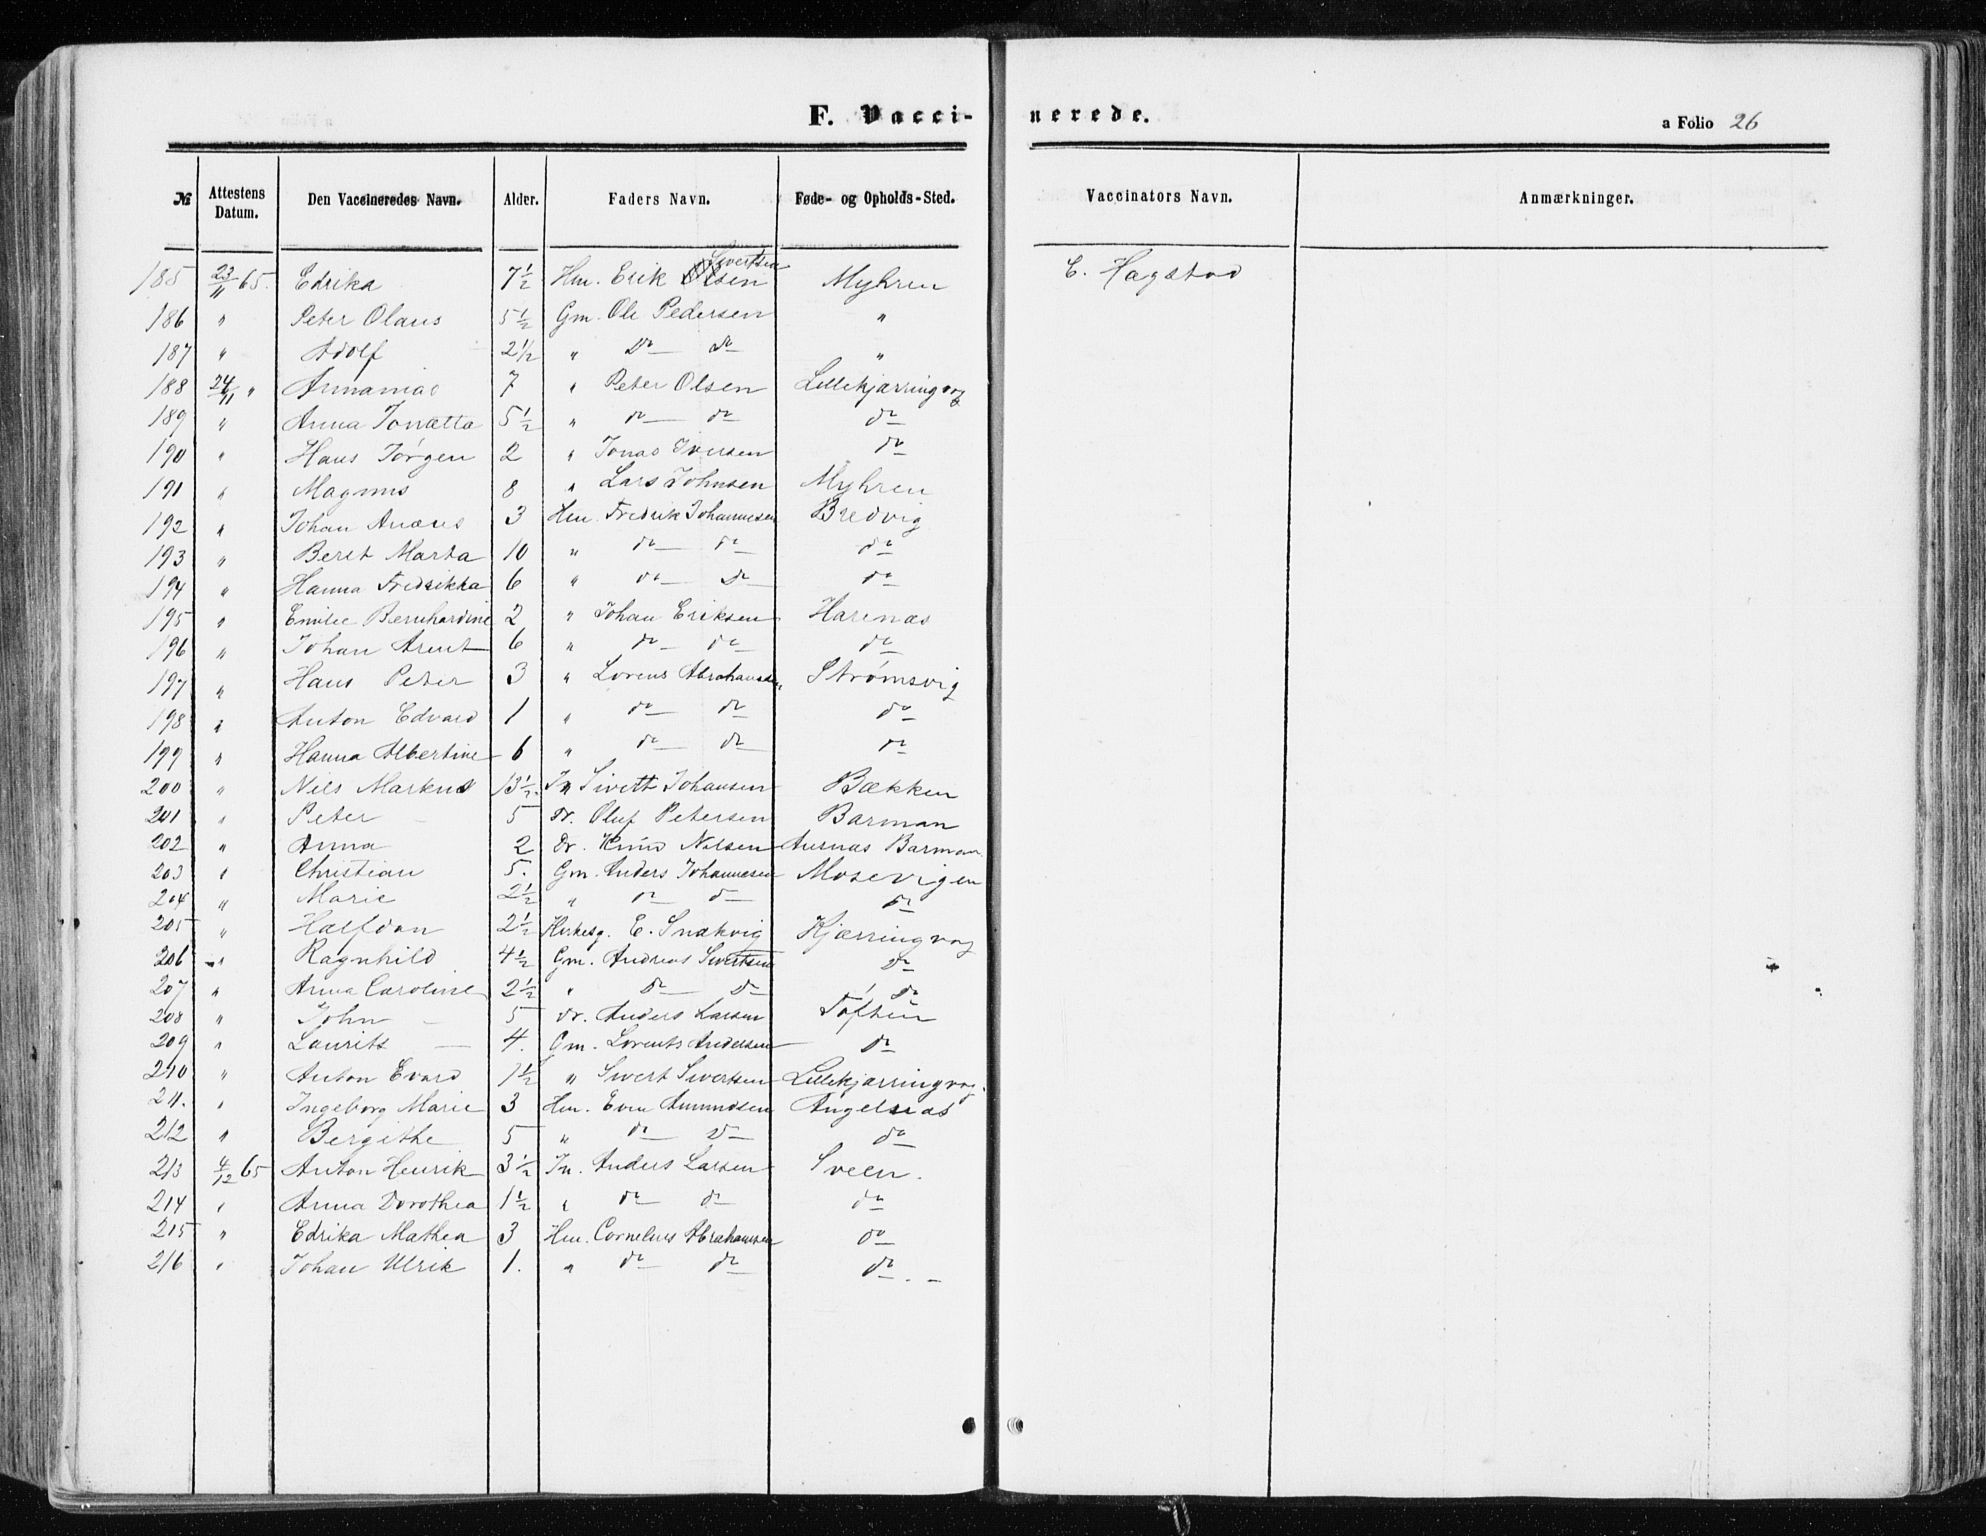 F. Vacci-nerede.
a Folio 26
№ Attestens Datum. Den Vaccineredes Navn. Alder. Faders Navn. Føde- og Opholds-Sted. Vaccinators Navn. Anmærkninger.
185 23/11 65. Edrika 7½ Hm. Erik Olsen Sivertsen Myhren E. Hagstad
186 " Peter Olaus 5½ Gm. Ole Pedersen "
187 " Adolf 2½ " do do "
188 24/11 " Annanias 7 " Peter Olsen Lillekjærringvog
189 " Anna Jonætta 5½ " do do do
190 " Hans Jørgen 2 " Jonas Iversen do
191 " Magnus 8 " Lars Johnsen Myhren
192 " Johan Anæus 3 Hm. Fredrik Johannesen Bredvig
193 " Beret Marta 10 " do do do
194 " Hanna Fredrikka 6 " do do do
195 " Emilie Bernhardine 2 " Johan Eriksen Harenas
196 " Johan Arent 6 " do do do
197 " Hans Peter 3 " Lorens Abrahamsen Strømsvig
198 " Anton Edvard 1 " do do do
199 " Hanna Albertine 6 " do do do
200 " Nils Markus 13½. In Sivert Johansen Bækken
201 " Peter - 5 dr. Oluf Petersen Barman
202 " Anna 2 Dr. Knud Nilsen Aurnas Barman
203 " Christian 5. Gm. Anders Johannesen Mosevigen
204 " Marie 2½ " do do do
205 " Halfdan 2½ Kirkesg. E. Snækvig Kjærringvog
206 " Ragnhild 4½ Gm. Andreas Sivertsen do
207 " Anna Caroline 2½ " do do do
208 " John - 5 dr. Anders Larsen Toften
209 " Laurits - 4. Gm. Lorents Andersen do
210 " Anton Evard 1½ " Sivert Sivertsen Lillekjærringvog.
211. " Ingeborg Marie 3 Hm. Even Amundsen Angelsas
212 " Bergithe 5 " do do do
213 4/12 65 Anton Henrik 3½ In. Anders Larsen Sveen.
214 " Anna Dorothea 1½ " do do do
215 " Edrika Mathea 3 Hm. Cornelius Abrahamsen do
216 " Johan Ulrik 1. " do do do